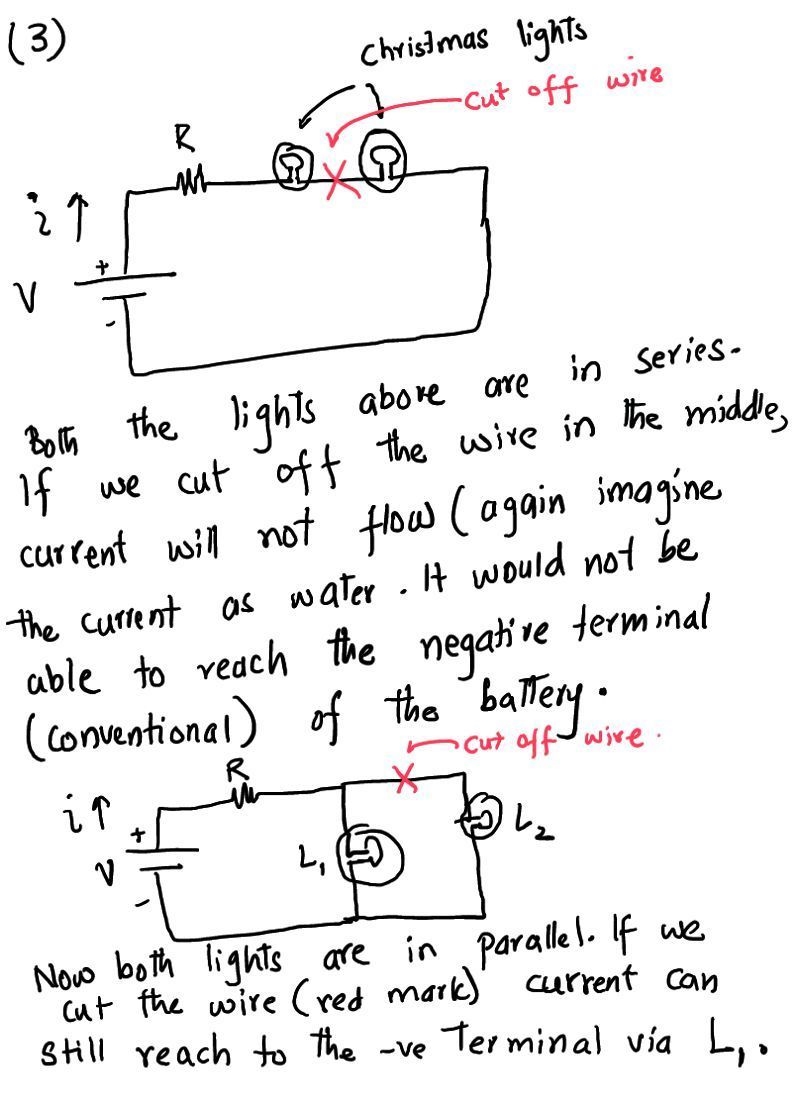 (3)
Christmas lights
cut off wire
R
i ↑
+
V
-
Both the lights above are in series.
If we cut off the wire in the middle,
current will not flow (again imagine
the current as water. It would not be
able to reach the negative terminal
(conventional) of the battery.
cut off wire.
R
i ↑
+
V
-
L₁
L₂
Now both lights are in parallel. If we
cut the wire (red mark) current can
still reach to the -ve Terminal via L₁.